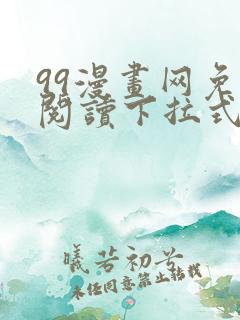 99漫畫网免
閱讀下拉式
曦若初兮
未经同意禁止转载